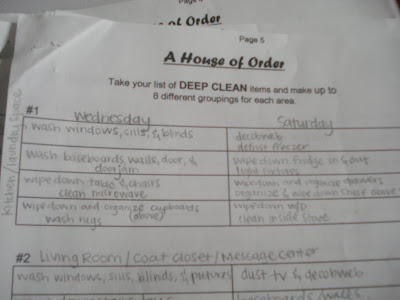 of Order
Page 5
A House of Order
Take your list of DEEP CLEAN items and make up to
8 different groupings for each area.
#1
Wednesday
Saturday
kitchen/laundry space
wash windows, sills, & blinds
decobweb
defrost freezer
wash baseboards, walls, door, &
doorjam
wipe down fridge in & out
light fixtures
wipe down table & chairs
clean microwave
wipe down and organize drawers
organize & wipe down above
wipe down and organize cupboards
wash rugs (above)
wipe down w/D
clean inside stove
#2 Living Room / Coat Closet / Message Center
wash windows, sills, blinds, & pictures
dust tv & decobweb